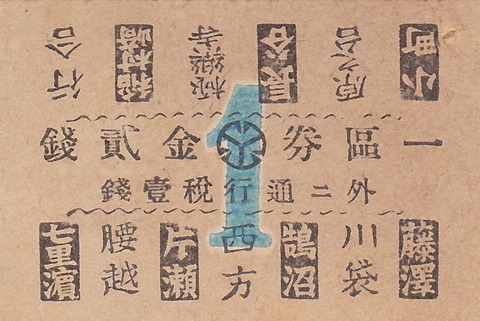 小町 原ヶ台 長谷 極樂寺 稲村崎 行合
一區券 金貳錢
外ニ通行税壹錢
1
藤澤 川袋 鵠沼 西方 片瀬 腰越 七里濱